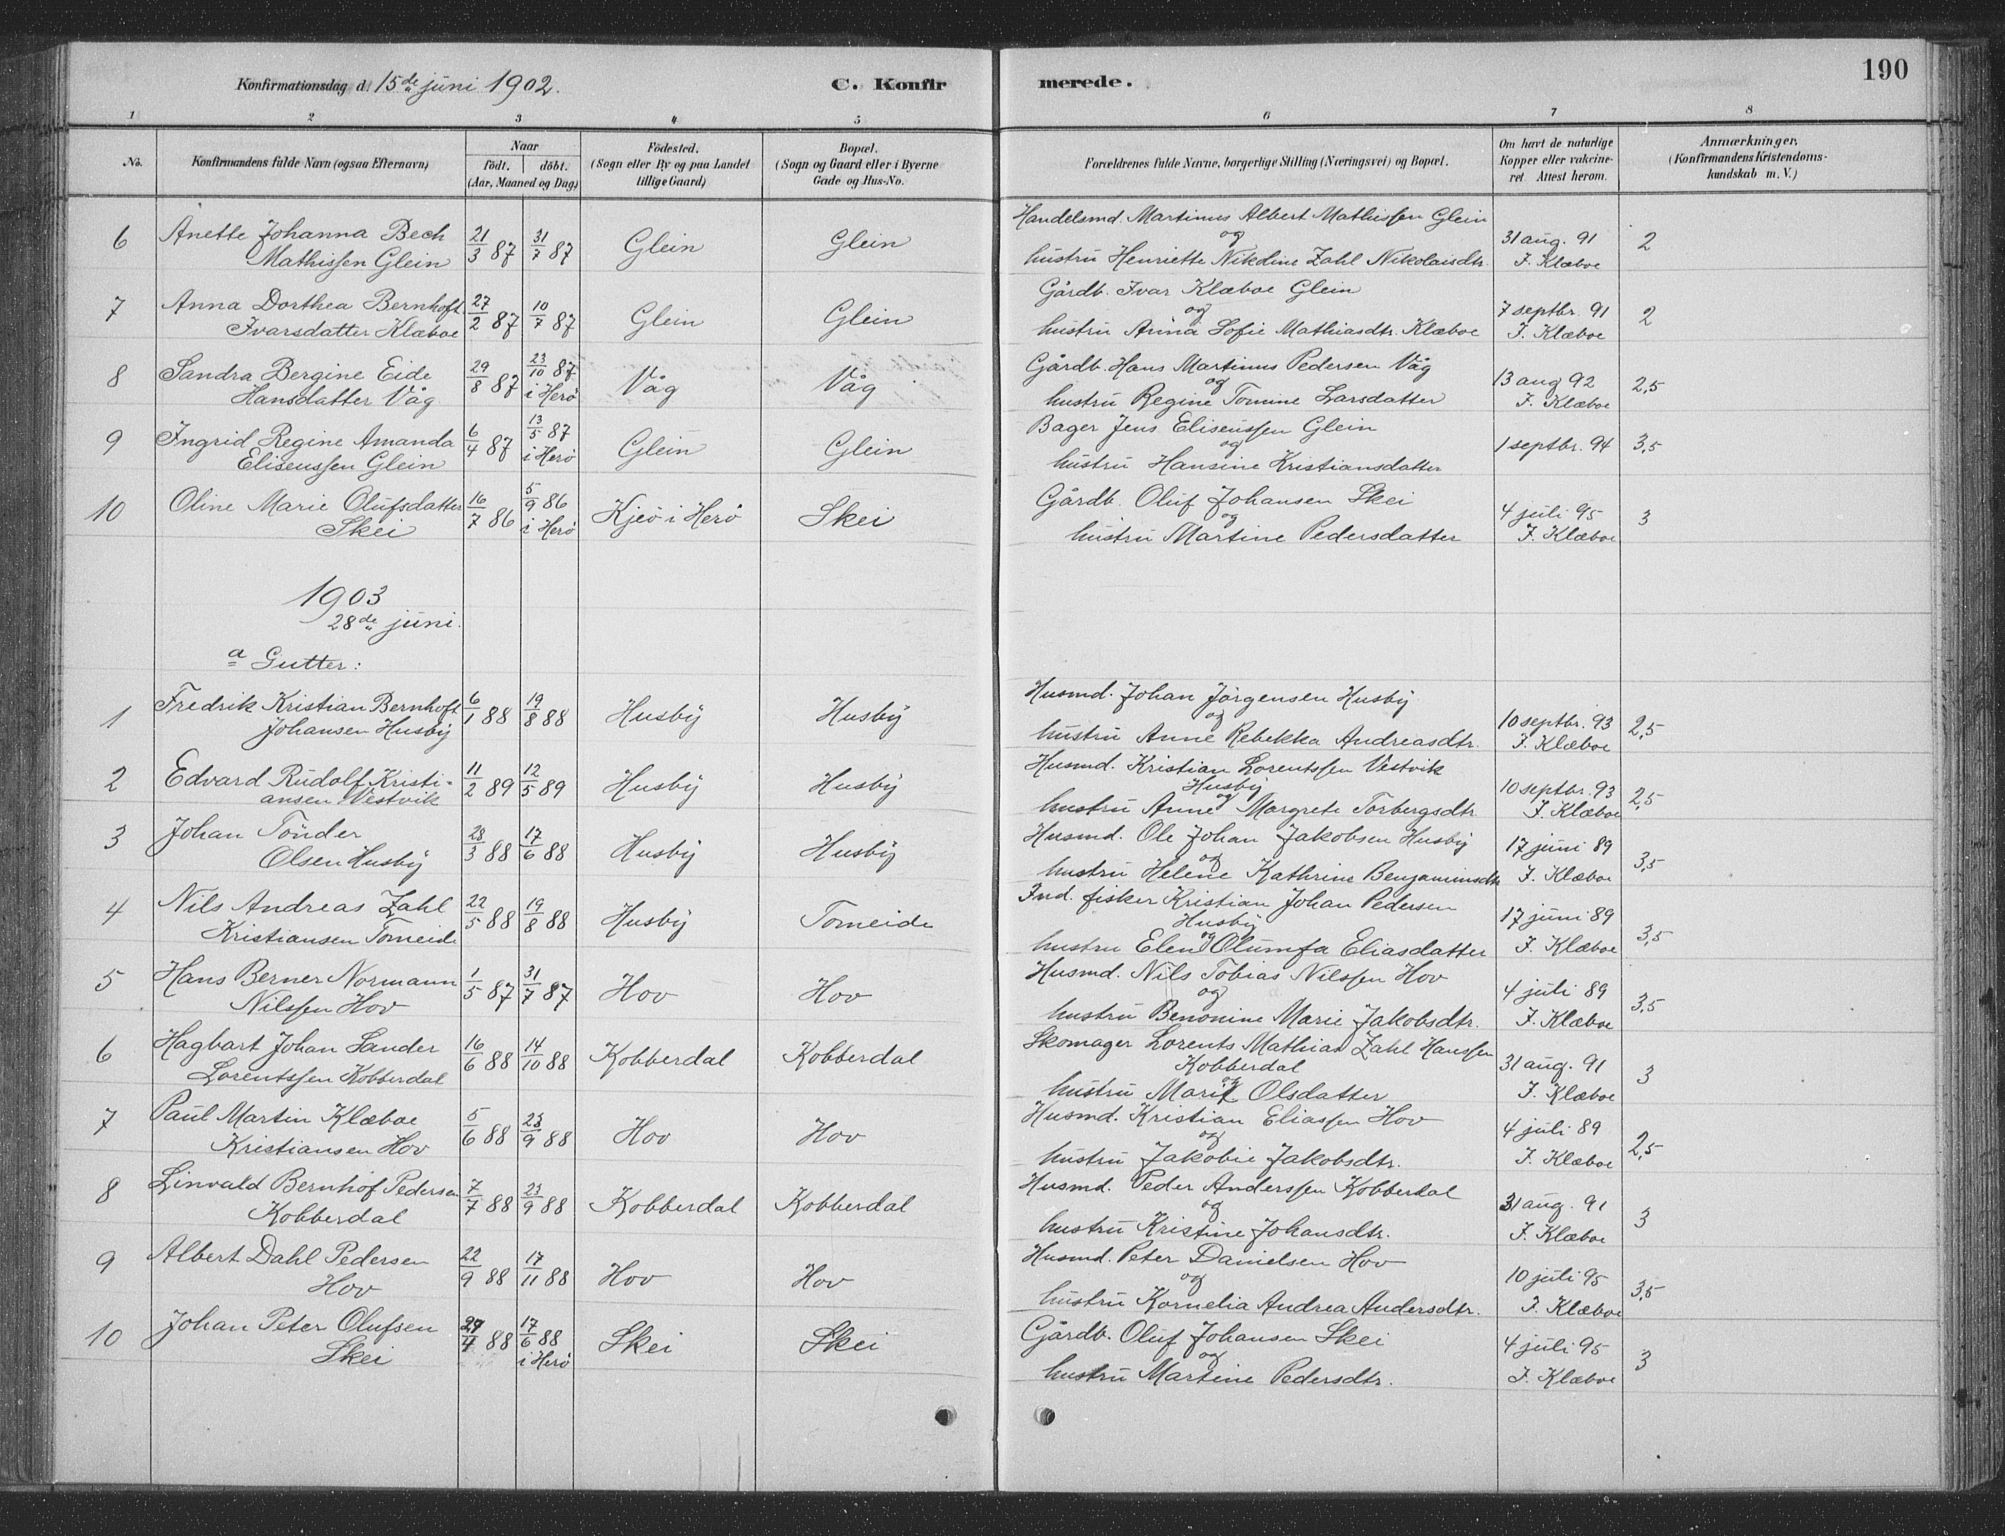 Konfirmationsdag d. 15de juni 1902. C. Konfirmerede. 190
1 2 3 4 5 6 7 8
No. Konfirmandens fulde Navn (ogsaa Efternavn) Naar födt. döbt. (Aar, Maaned og Dag) Födested. (Sogn eller By og paa Landet tillige Gaard) Bopæl. (Sogn og Gaard eller i Byerne Gade og Hus-No. Forældrenes fulde Navne, borgerlige Stilling (Næringsvei) og Bopæl. Om havt de naturlige Kopper eller vakcineret Attest herom. Anmærkninger. (Konfirmandens Kristendomskundskab m. V.)
6 Anette Johanna Bech Mathissen Glein 21/3 87 31/7 87 Glein Glein Handelsmd. Martinus Albert Mathissen Glein
og
hustru Henriette Nikoline Zahl Nikolaisdtr. 31 aug. 91 J. Klæboe 2
7 Anna Dorthea Bernhoft Ivarsdatter Klæboe 27/2 87 10/7 87 Glein Glein Gårdb. Ivar Klæboe Glein
og
hustru Anna Sofie Mathiasdtr. Klæboe 7 septbr. 91 J. Klæboe 2
8 Sandra Bergine Eide Hansdatter Våg 29/8 87 23/10 87 i Herö Våg Våg Gårdb. Hans Martinus Pedersen Våg
og
hustru Regine Tomine Larsdatter 13 aug 92 J. Klæboe 2,5
9 Ingrid Regine Amanda Eliseussen Glein 6/4 87 13/5 87 i Herö Glein Glein Bager Jens Eliseussen Glein
og
hustru Hansine Kristiansdatter 1 septbr. 94 3,5
10 Oline Marie Olufsdatter Skei 16/7 86 5/9 86 i Herö Kjeö i Herö Skei Gårdb. Oluf Johansen Skei
og
hustru Martine Pedersdatter 4 juli 95 J. Klæboe 3
1903
28de juni.
a Gutter:
1 Fredrik Kristian Bernhoft Johansen Husby 6/1 88 19/8 88 Husby Husby Husmd. Johan Jörgensen Husby
og
hustru Anne Rebekka Andreasdtr. 10 septbr. 93 J. Klæboe 2,5
2 Edvard Rudolf Kristiansen Vestvik 11/2 89 12/5 89 Husby Husby Husmd. Kristian Lorentssen Vestvik
Husby
og
hustru Anne Margrete Torbergsdtr 10 septbr. 93 J. Klæboe 2,5
3 Johan Tönder Olsen Husby 28/3 88 17/6 88 Husby Husby Husmd. Ole Johan Jakobsen Husby
og
hustru Helene Kathrine Benjaminsdtr 17 juni 89 J. Klæboe 3,5
4 Nils Andreas Zahl Kristiansen Tomeide 22/5 88 19/8 88 Husby Tomeide Ind. fisker Kristian Johan Pedersen
Husby
og
hustru Elen Olumfa Eliasdatter 17 juni 89 J. Klæboe 3,5
5 Hans Berner Normann Nilssen Hov 1/5 87 31/7 87 Hov Hov Husmd. Nils Tobias Nilssen Hov
og
hustru Benonine Marie Jakobsdtr. 4 juli 89 J. Klæboe 3,5
6 Hagbart Johan Sander Lorentssen Kobberdal 16/6 88 14/10 88 Kobberdal Kobberdal Skomager Lorents Mathias Zahl Hanssen
Kobberdal
og
hustru Marie Olsdatter 31 aug. 91 J. Klæboe 3
7 Paul Martin Klæboe Kristiansen Hov 5/6 88 23/9 88 Hov Hov Husmd. Kristian Eliassen Hov
og
hustru Jakobie Jakobsdtr. 4 juli 89 J. Klæboe 2,5
8 Linvald Bernhof Pedersen Kobberdal 7/7 88 23/9 88 Kobberdal Kobberdal Husmd. Peder Anderssen Kobberdal
og
hustru Kristine Johansdtr. 31 aug. 91 J. Klæboe 3
9 Albert Dahl Pedersen Hov 22/9 88 17/11 88 Hov Hov Husmd. Peter Danielsen Hov
og
hustru Kornelia Andrea Andersdtr. 10 juli 95 J. Klæboe 3,5
10 Johan Peter Olufsen Skei 88 17/6 88 i Herö Skei Skei Gårdb. Oluf Johansen Skei
og
hustru Martine Pedersdtr. 4 juli 95 J. Klæboe 3